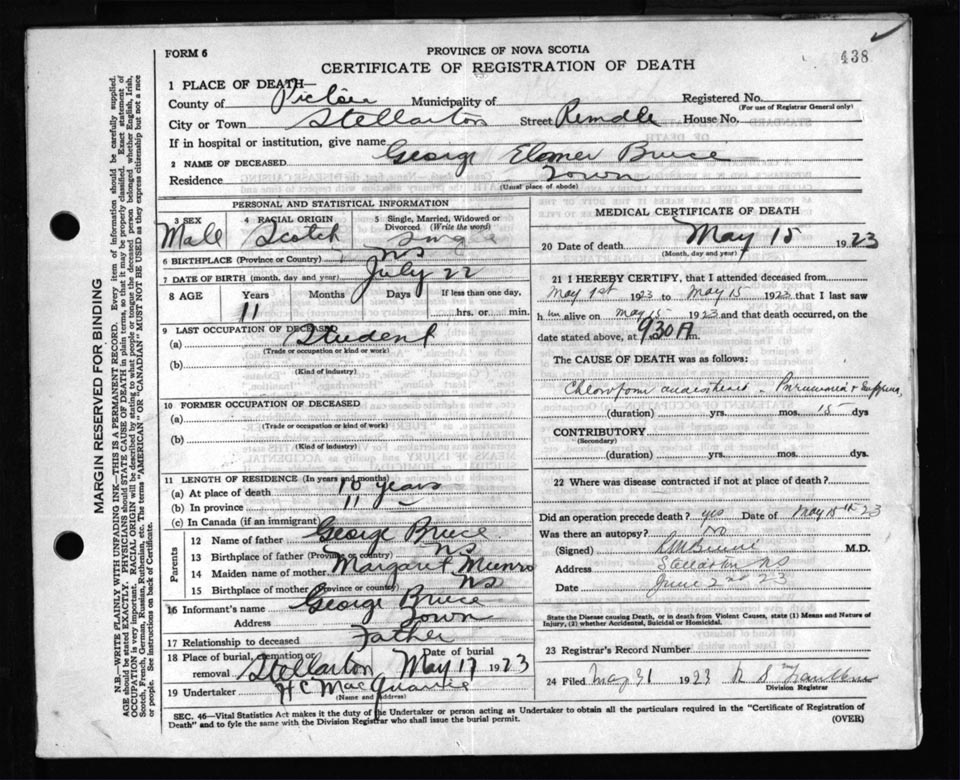 438
FORM 6
PROVINCE OF NOVA SCOTIA
CERTIFICATE OF REGISTRATION OF DEATH
MARGIN RESERVED FOR BINDING
N.B.—WRITE PLAINLY WITH UNFADING INK—THIS IS A PERMANENT RECORD. Every item of information should be carefully supplied.
AGE should be stated EXACTLY. PHYSICIANS should STATE CAUSE OF DEATH in plain terms, so that it may be properly classified. Exact statement of
OCCUPATION is very important. RACIAL ORIGIN will be described by stating to what people or tongue the deceased person belonged whether English, Irish,
Scotch, French, German, Russian, Ruthenian, etc. The terms "AMERICAN" OR "CANADIAN" MUST NOT BE USED as they express citizenship but not a race
or people. See instructions on back of Certificate.
1 PLACE OF DEATH—
County of Pictou Municipality of Registered No.
(For use of Registrar General only)
City or Town Stellarton Street House No.
If in hospital or institution, give name
2 NAME OF DECEASED George Elmer Bruce
Residence Town
(Usual place of abode)
PERSONAL AND STATISTICAL INFORMATION
3 SEX Male
4 RACIAL ORIGIN Scotch
5 Single, Married, Widowed or Divorced (Write the word) Single
6 BIRTHPLACE (Province or Country) NS
7 DATE OF BIRTH (month, day and year) July 22
8 AGE Years Months Days If less than one day,
11 hrs. or min.
9 LAST OCCUPATION OF DECEASED
(a) Student
(Trade or occupation or kind or work)
(b)
(Kind of industry)
10 FORMER OCCUPATION OF DECEASED
(a)
(Trade or occupation or kind of work)
(b)
(Kind of industry)
11 LENGTH OF RESIDENCE (In years and months)
(a) At place of death 10 years
(b) In province 11 –
(c) In Canada (if an immigrant)
Parents
12 Name of father George Bruce
13 Birthplace of father (Province or country) NS
14 Maiden name of mother Margaret Munro
15 Birthplace of mother (Province or country) NS
16 Informant's name George Bruce
Address Town
17 Relationship to deceased Father
18 Place of burial, cremation or removal Stellarton Date of burial May 17 1923
19 Undertaker H C MacQuarrie
(Name and address)
MEDICAL CERTIFICATE OF DEATH
20 Date of death May 15 1923
(Month, day and year)
21 I HEREBY CERTIFY, that I attended deceased from
May 1st 1923 to May 15 1923 that I last saw
him alive on May 15 1923 and that death occurred, on the
date stated above, at 930 A m.
The CAUSE OF DEATH was as follows:
Chloroform Pneumonia +
(duration) yrs. mos. 15 dys
CONTRIBUTORY
(Secondary)
(duration) yrs. mos. dys
22 Where was disease contracted if not at place of death?
Did an operation precede death? yes Date of May 15th 23
Was there an autopsy? No
(Signed) M.D.
Address Stellarton NS
Date June 2nd 23
State the Disease causing Death, or in death from Violent Causes, state (1) Means and Nature of
Injury, (2) whether Accidental, Suicidal or Homicidal.
23 Registrar's Record Number
24 Filed May 31 1923
Division Registrar
SEC. 46—Vital Statistics Act makes it the duty of the Undertaker or person acting as Undertaker to obtain all the particulars required in the "Certificate of Registration of
Death" and to fyle the same with the Division Registrar who shall issue the burial permit. (OVER)